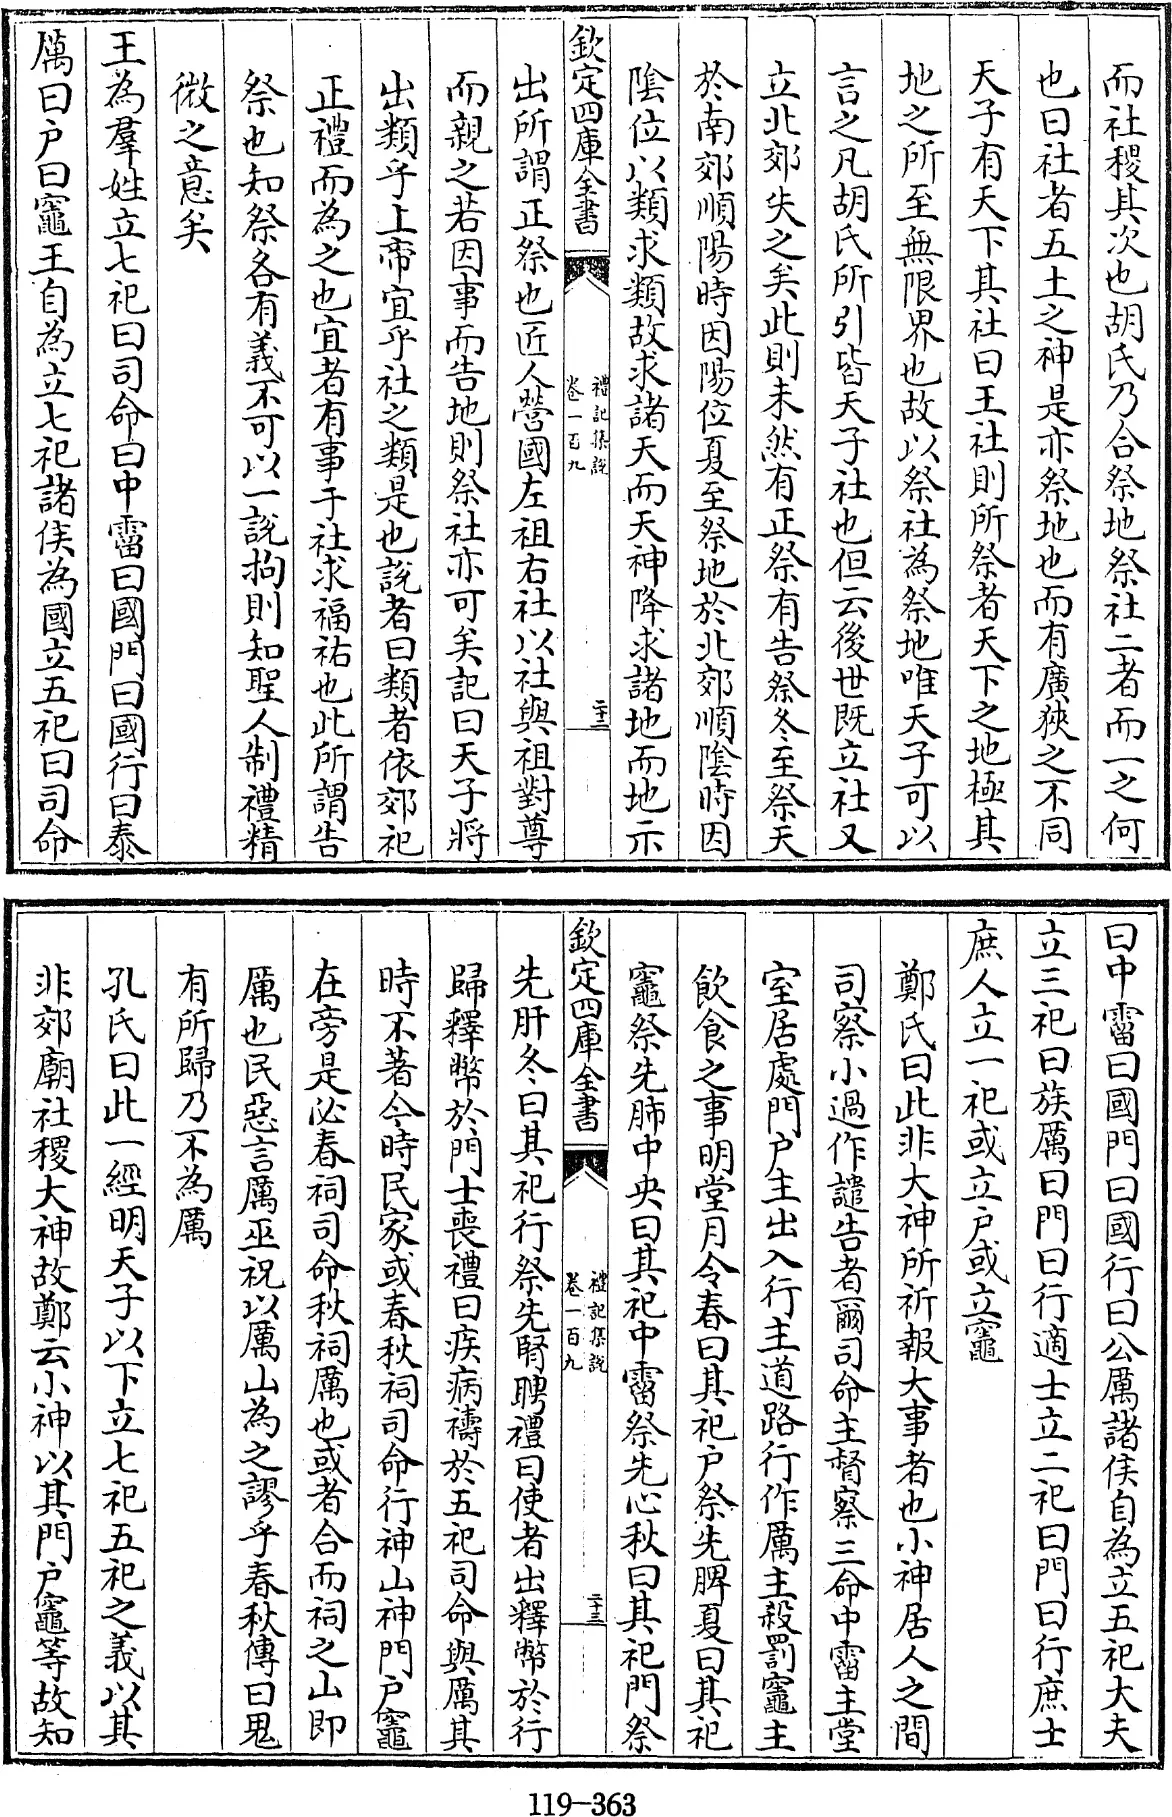 而社稷其次也胡氏乃合祭地祭社二者而一之何
也曰社者五土之神是亦祭地也而有廣狹之不同
天子有天下其社曰王社則所祭者天下之地極其
地之所至無限界也故以祭社為祭地唯天子可以
言之凡胡氏所引皆天子社也但云後世既立社又
立北郊失之矣此則未然有正祭有告祭冬至祭天
於南郊順陽時因陽位夏至祭地於北郊順陰時因
陰位以類求類故求諸天而天神降求諸地而地示
欽定四庫全書
禮記集說
卷一百九
二十二
出所謂正祭也匠人營國左祖右社以社與祖對尊
而親之若因事而告地則祭社亦可矣記曰天子將
出類乎上帝宜乎社之類是也說者曰類者依郊祀
正禮而為之也宜者有事于社求福祐也此所謂告
祭也知祭各有義不可以一說拘則知聖人制禮精
微之意矣
王為羣姓立七祀曰司命曰中霤曰國門曰國行曰泰
厲曰户曰竈王自為立七祀諸侯為國立五祀曰司命
曰中霤曰國門曰國行曰公厲諸侯自為立五祀大夫
立三祀曰族厲曰門曰行適士立二祀曰門曰行庶士
庶人立一祀或立户或立竈
鄭氏曰此非大神所祈報大事者也小神居人之間
司察小過作譴告者爾司命主督察三命中霤主堂
室居處門户主出入行主道路行作厲主殺罰竈主
飲食之事明堂月令春曰其祀户祭先脾夏曰其祀
竈祭先肺中央曰其祀中霤祭先心秋曰其祀門祭
欽定四庫全書
禮記集說
卷一百九
二十三
先肝冬曰其祀行祭先腎聘禮曰使者出釋幣於行
歸釋幣於門士喪禮曰疾病禱於五祀司命與厲其
時不著今時民家或春秋祠司命行神山神門户竈
在旁是必春祠司命秋祠厲也或者合而祠之山即
厲也民惡言厲巫祝以厲山為之謬乎春秋傳曰鬼
有所歸乃不為厲
孔氏曰此一經明天子以下立七祀五祀之義以其
非郊廟社稷大神故鄭云小神以其門户竈等故知
119-363